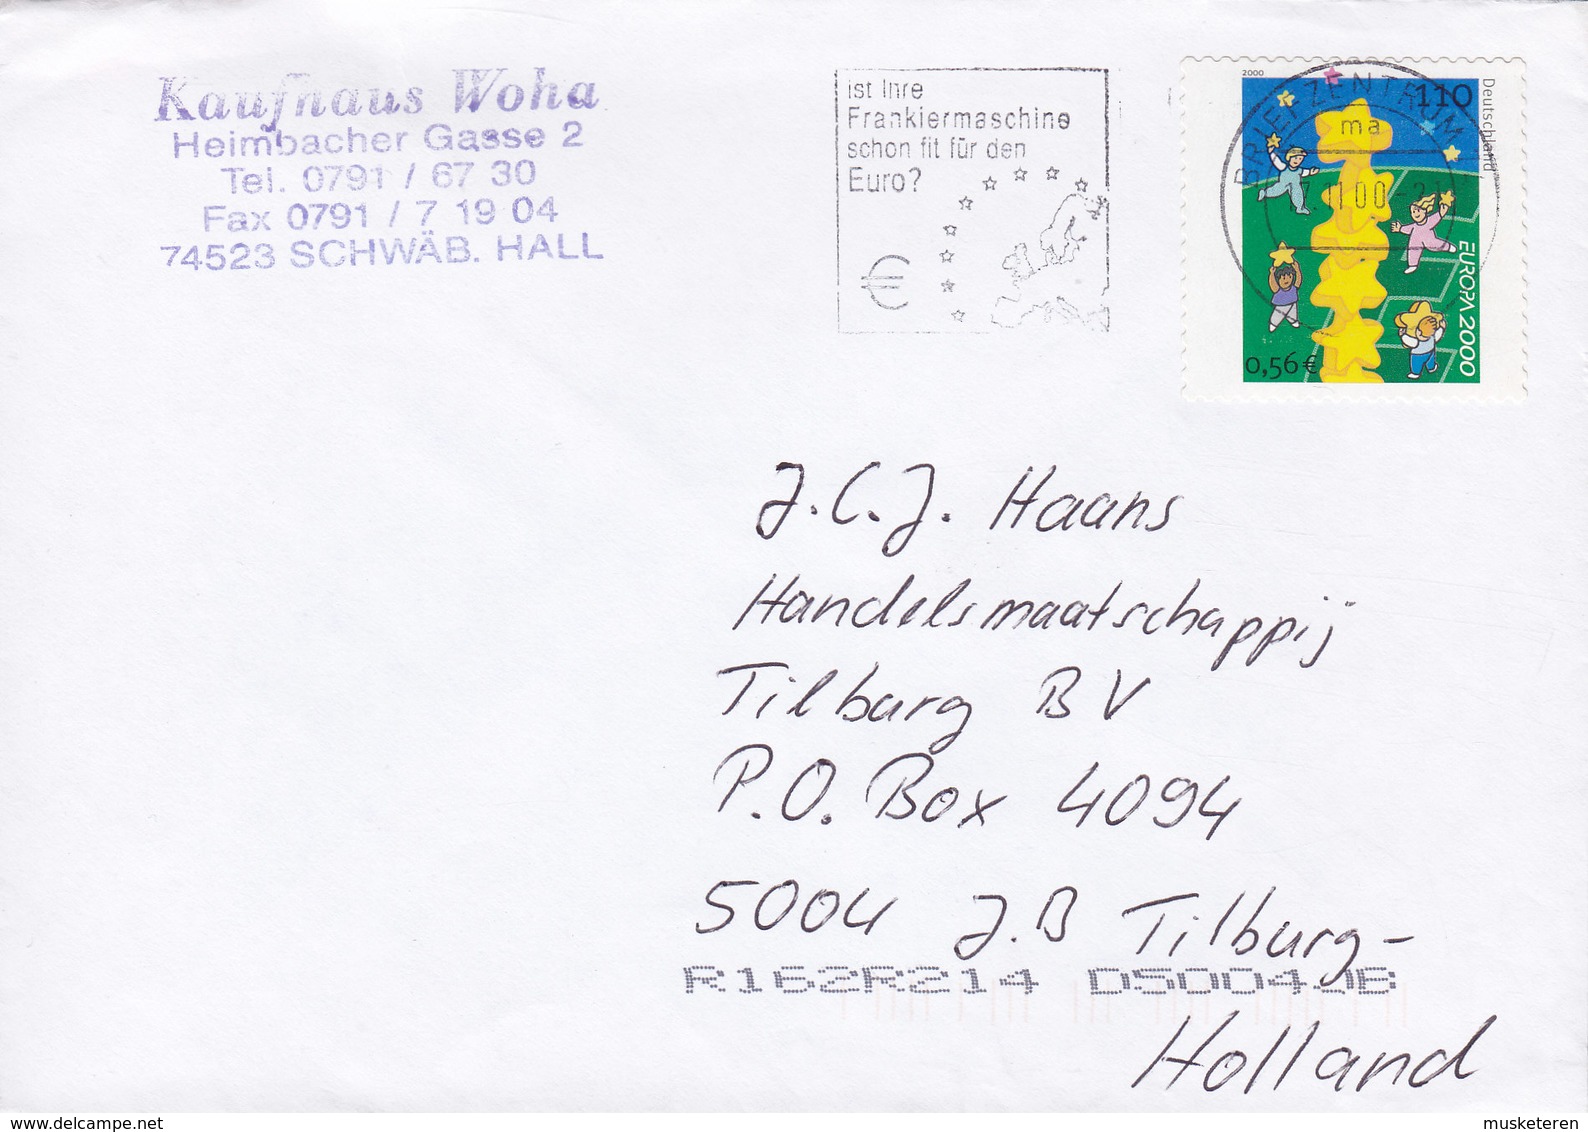 Kaufhaus Woha
Heimbacher Gasse 2
Tel. 0791 / 67 30
Fax 0791 / 7 19 04
74523 SCHWÄB. HALL
ist Ihre
Frankiermaschine
schon fit für den
Euro?
€
2000
110
Deutschland
EUROPA 2000
0,56€
BRIEFZENTRUM
ma
.11.00-21
J.C.J. Haans
Handelsmaatschappij
Tilburg BV
P.O. Box 4094
5004 J.B Tilburg-
R162R214 D5004JB
Holland
www.delcampe.net
musketeren